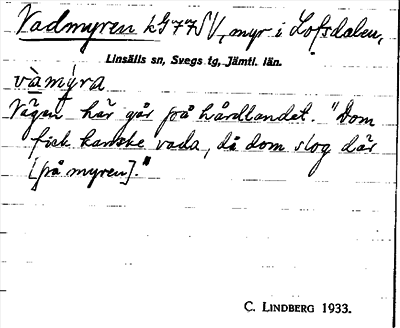 Vadmyren kG77SV, myr i Lofsdalen,
Linsälls sn, Svegs tg, Jämtl. län.
và mýra
Vägen här går på hårdlandet. "Dom
fick kanske vada, då dom slog där
[på myren]."
C. LINDBERG 1933.